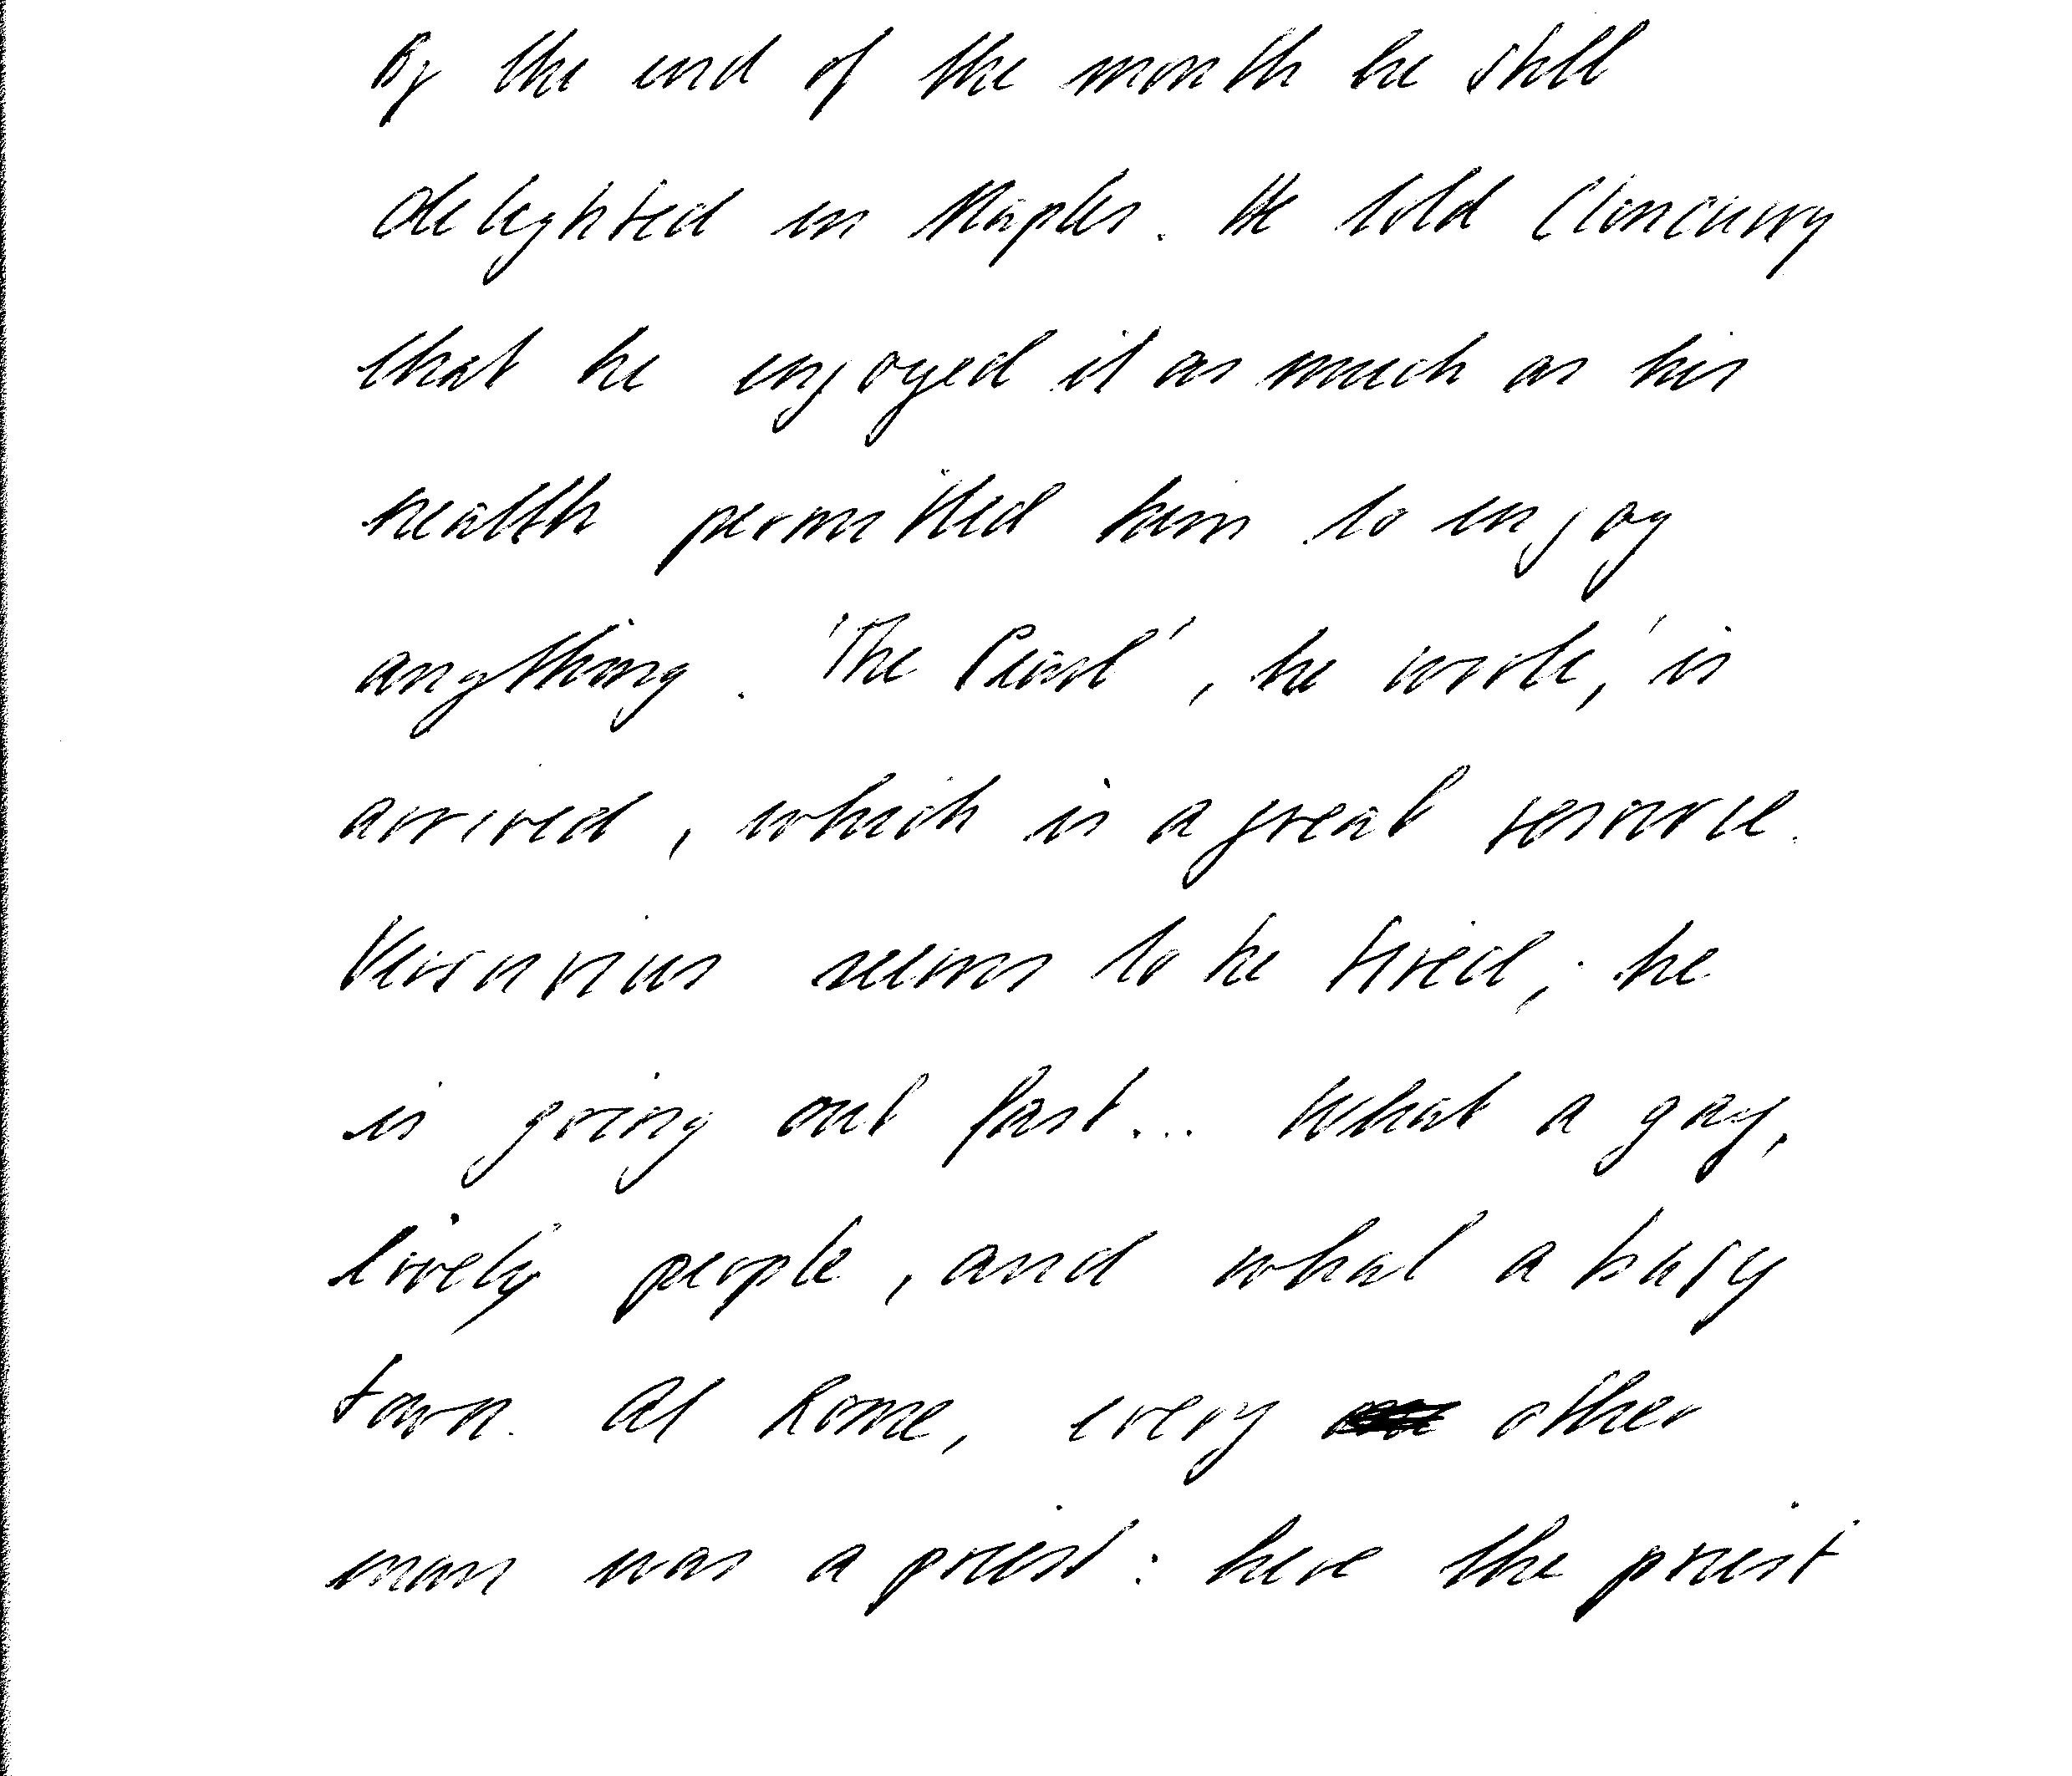 By the end of the month he still
delighted in Naples. He told Cloncurry
that he enjoyed it as much as his
health permitted him to enjoy
anything. 'The Pearl', he wrote, 'is
arrived, which is a great resource.
Versuvius seems to be tired; he
is going out fast... What a gay,
lively people, and what a busy
town. At Rome, every other
man was a priest: here the priest